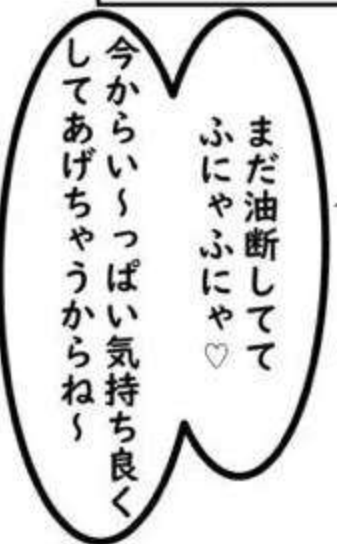 まだ油断してて
ふにゃふにゃ♡
今からい～っぱい気持ち良く
してあげちゃうからね～